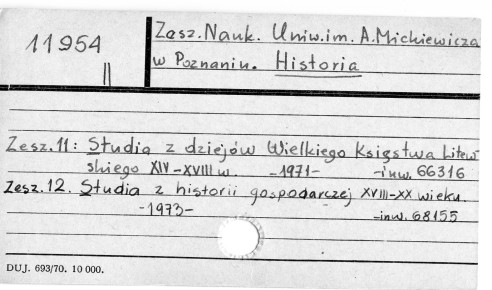 11954
II
Zesz. Nauk. Uniw. im. A. Mickiewicza
w Poznaniu. Historia
Zesz. 11: Studia z dziejów Wielkiego Księstwa Litew
skiego XIV-XVIII w. -1971- -inw. 66316
Zesz. 12. Studia z historii gospodarczej XVIII-XX wieku.
-1973- -inw. 68155
DUJ. 693/70. 10 000.